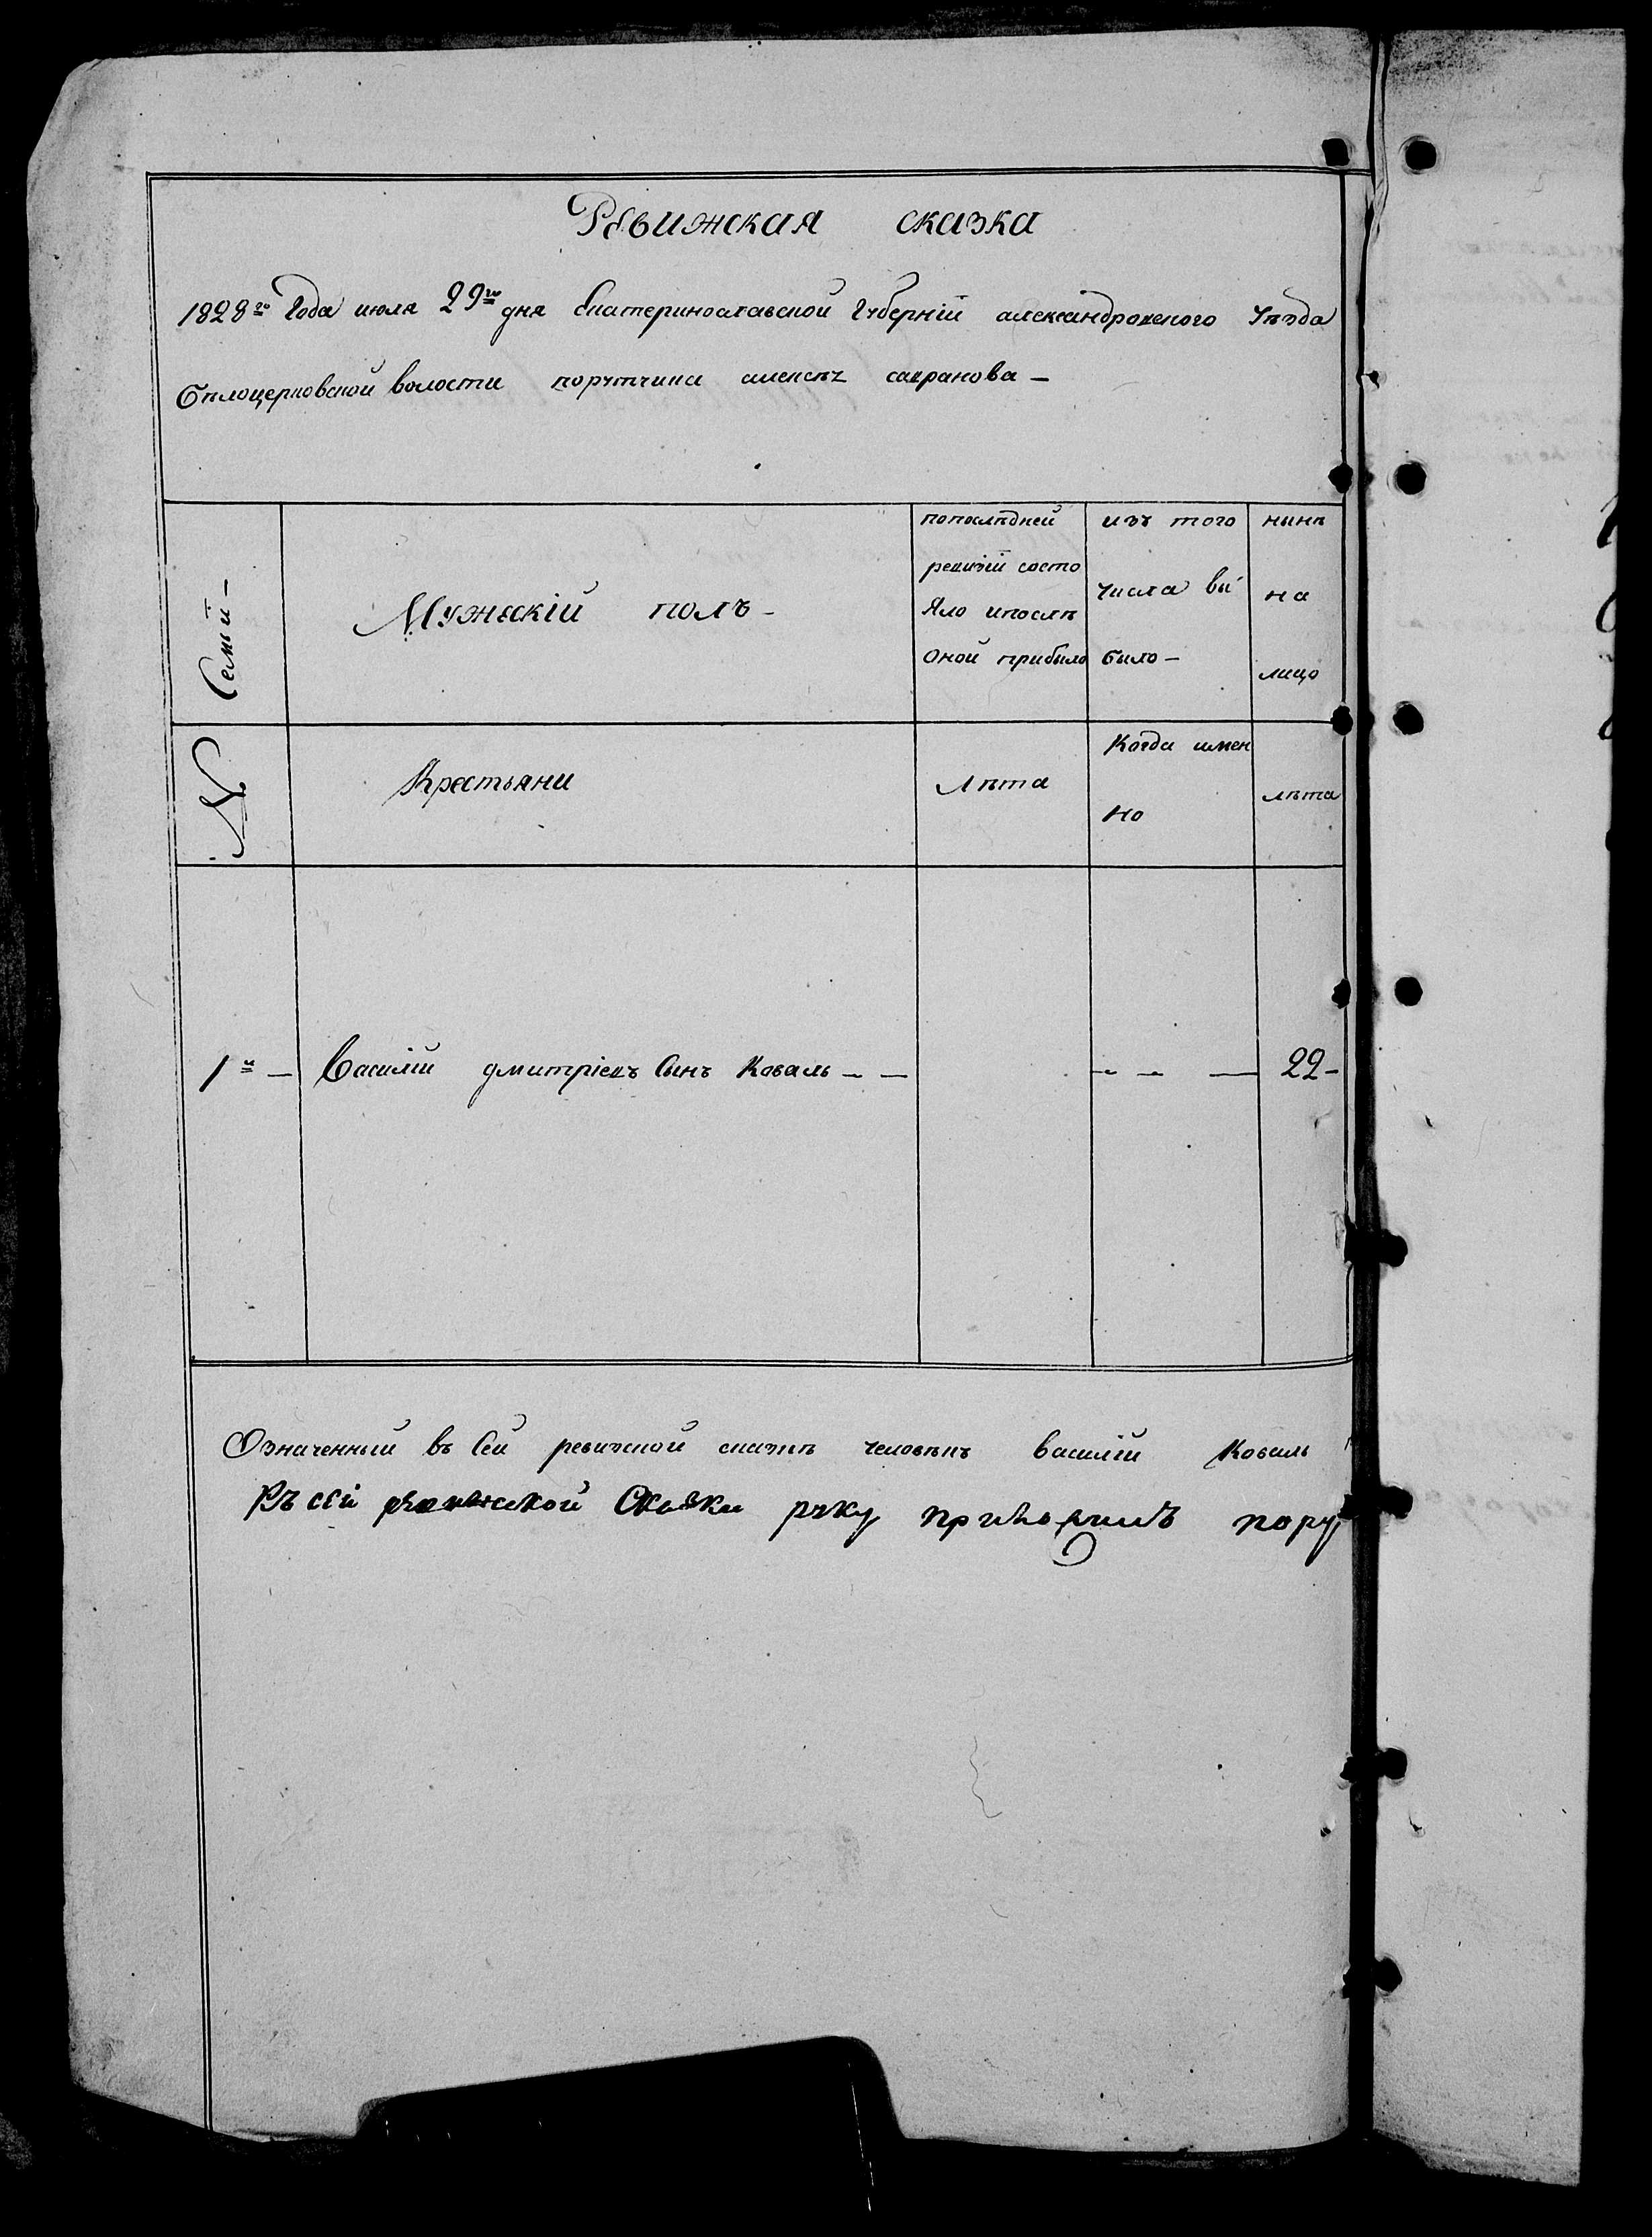 Ревижская сказка
1828го Года июля 29го дня Екатериноставской Губерніи александровского Уѣзда
бѣлоцерковской волости порутчика алексѣя
Семьи – | Мужескій полъ – | попослѣдней ревизіи состо яло ипослѣ оной прибыло | изъ того числа вы было – | нынѣ на лицо
№ | Крестьяни | лѣта | Когда имен но | лѣта
1й – | Василій дмитріевъ Сынъ Коваль – – | – – – | 22 –
Означенный въ Сей ревижской сказкѣ человѣкъ василій Коваль
Къ сей ревижской Сказки руку приложилъ пору